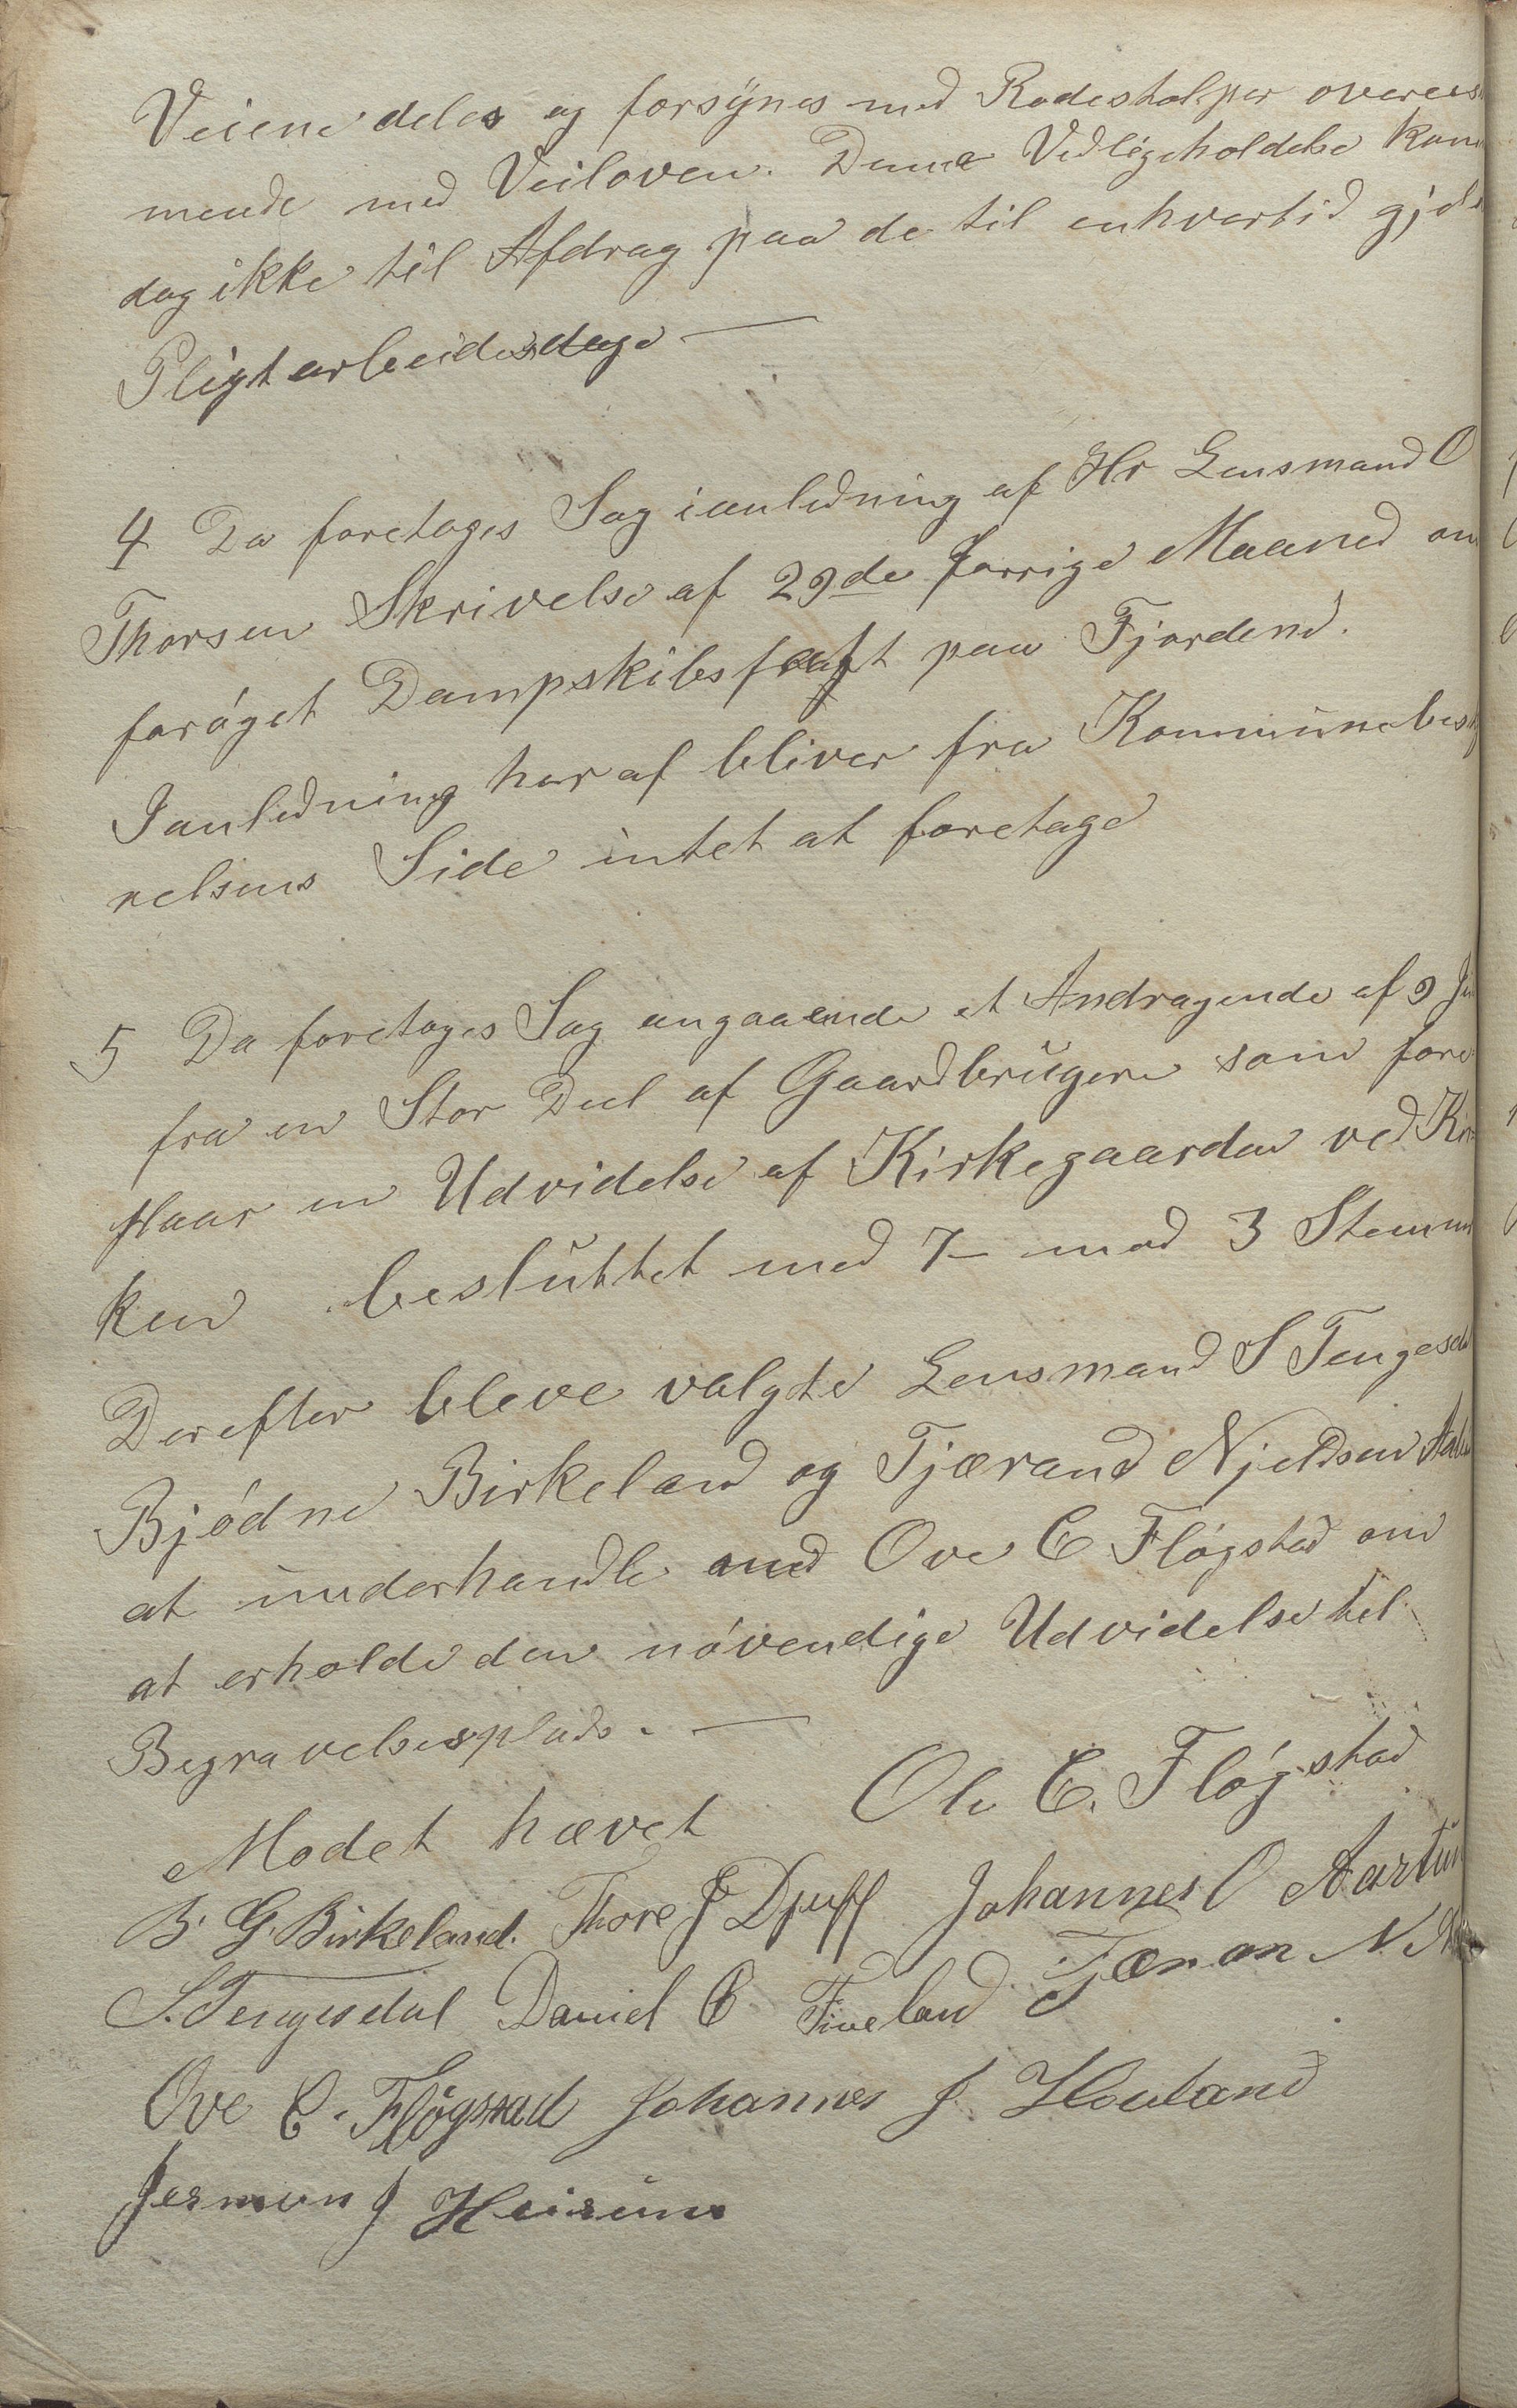 Veiene deles og forsÿnes med Rodestolper overens
mende med Veiloven. Denne Vedligeholdelse kom
dog ikke til Afdrag paa de til enhvertid gjæl
Pligtarbeidesdage —
4 Da foretoges Sag ianledning af Hr Lensmand O
Thorsen Skrivelse af 29de forrige Maaned om
forøget Dampskibsfart paa Fjordene.
Ianledning heraf bliver fra Kommunebesty
relsens Side intet at foretage
5 Da foretoges Sag angaaende et Andragende af 9
fra en Stor Deel af Gaardbrugere som fore
slaar en Udvidelse af Kirkegaarden ved Kir
ken besluttet med 7 – mod 3 Stemm
Derefter bleve valgte Lensmand S Tengesdal
Bjødne Birkeland og Tjærand Njeldsen
at underhandle med Ove C Fløgstad om
at erholde den nøvendige Udvidelse til
Begravelsesplads. —
Mødet hævet Ole C. Fløgstad
B. G. Birkeland. Thore J Djuff Johannes O Aartun
S. Tengesdal Daniel C Fiveland Tjæran N.
Ove C. Fløgstad Johannes J Houland
Jermun J Heirum